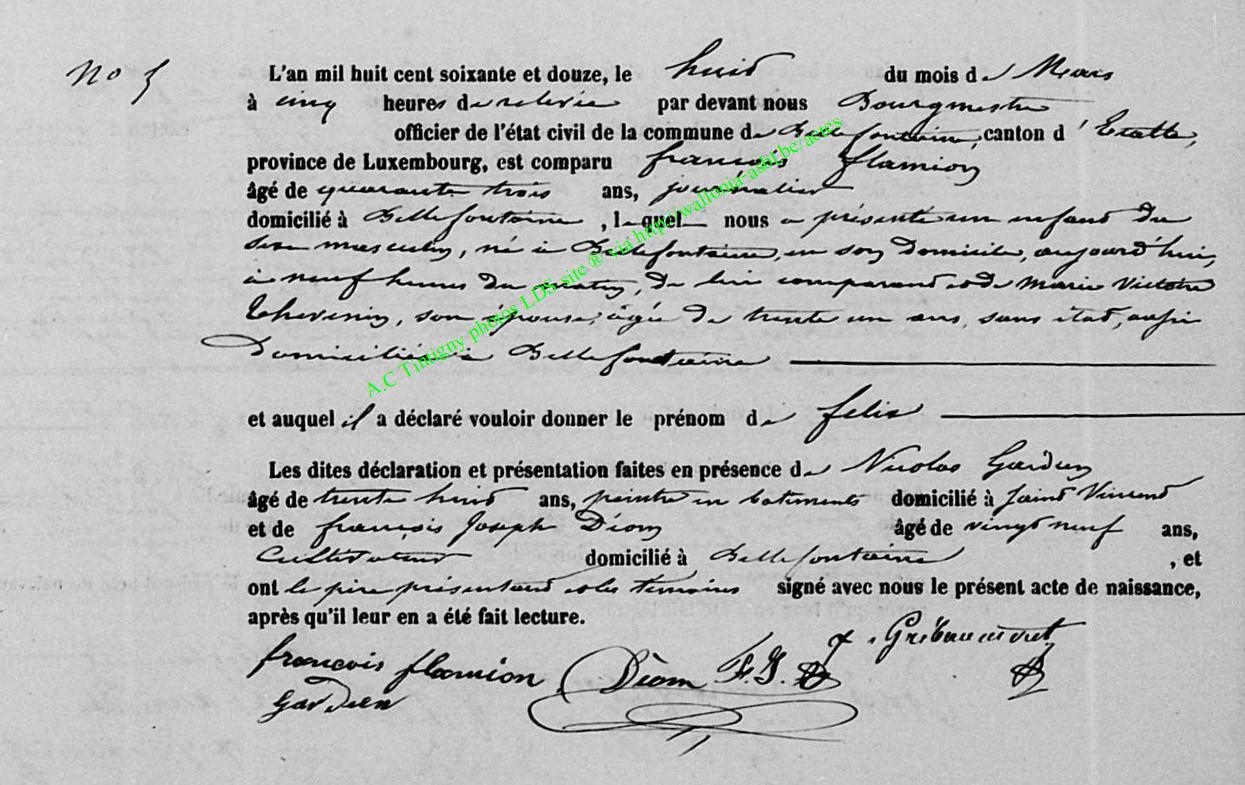 No 5
L'an mil huit cent soixante et douze, le huit du mois de Mars
à cinq heures de relevée par devant nous Bourgmestre
officier de l'état civil de la commune de Bellefontaine, canton d'Etalle,
province de Luxembourg, est comparu françois flamion
âgé de quarante trois ans, journalier
domicilié à Bellefontaine, lequel nous a présenté un enfant du
sexe masculin, né à Bellefontaine, en son domicile, aujourd'hui,
à neuf heures du matin, de lui comparant et de Marie Victoire
Thevenin, son épouse, âgée de trente un ans, sans état, aussi
Domiciliée à Bellefontaine
et auquel il a déclaré vouloir donner le prénom de felix
Les dites déclaration et présentation faites en présence de Nicolas Gardien
âgé de trente huit ans, peintre en batiments domicilié à Saint Vincent
et de françois Joseph Diom âgé de vingt neuf ans,
Cultivateur domicilié à Bellefontaine, et
ont le père présentant et les temoins signé avec nous le présent acte de naissance,
après qu'il leur en a été fait lecture.
françois flamion Diom F. J.
Gardien
A.C Tintigny photos LDS site ® via http://wallonia-asbl.be/actes